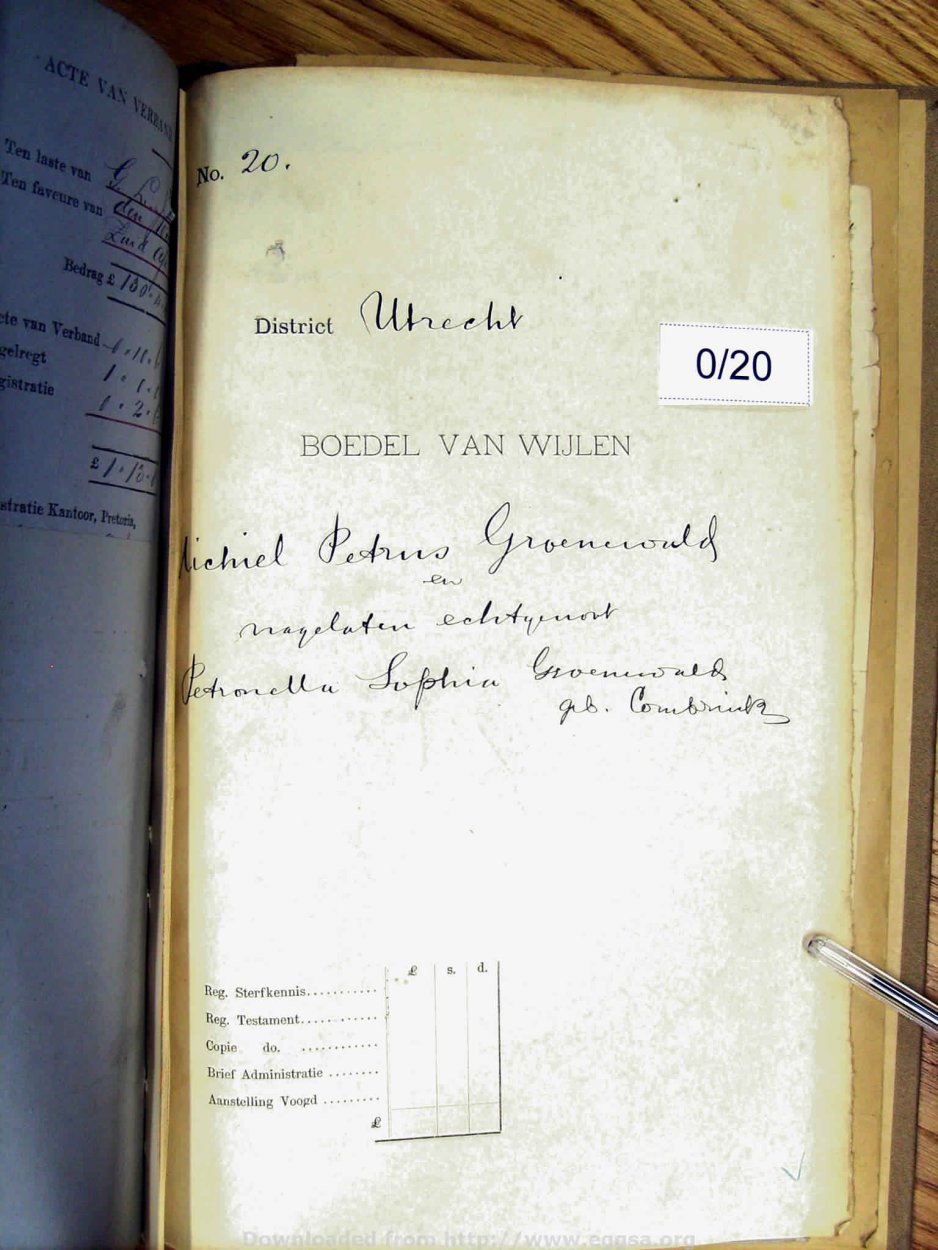 ACTE VAN
Ten laste van
Ten faveure van
Zuid
Bedrag £ 130
Acte van Verband
Pretoria,
stratie Kantoor,
No. 20.
District Utrecht
0/20
BOEDEL VAN WIJLEN
Michiel Petrus Groenewald
en
nagelaten echtgenoot
Petronella Sophia Groenewald
geb. Combrink
£ s. d.
Reg. Sterfkennis...........
Reg. Testament............
Copie do. ............
Brief Administratie ........
Aanstelling Voogd .........
£
Downloaded from http://www.eggsa.org